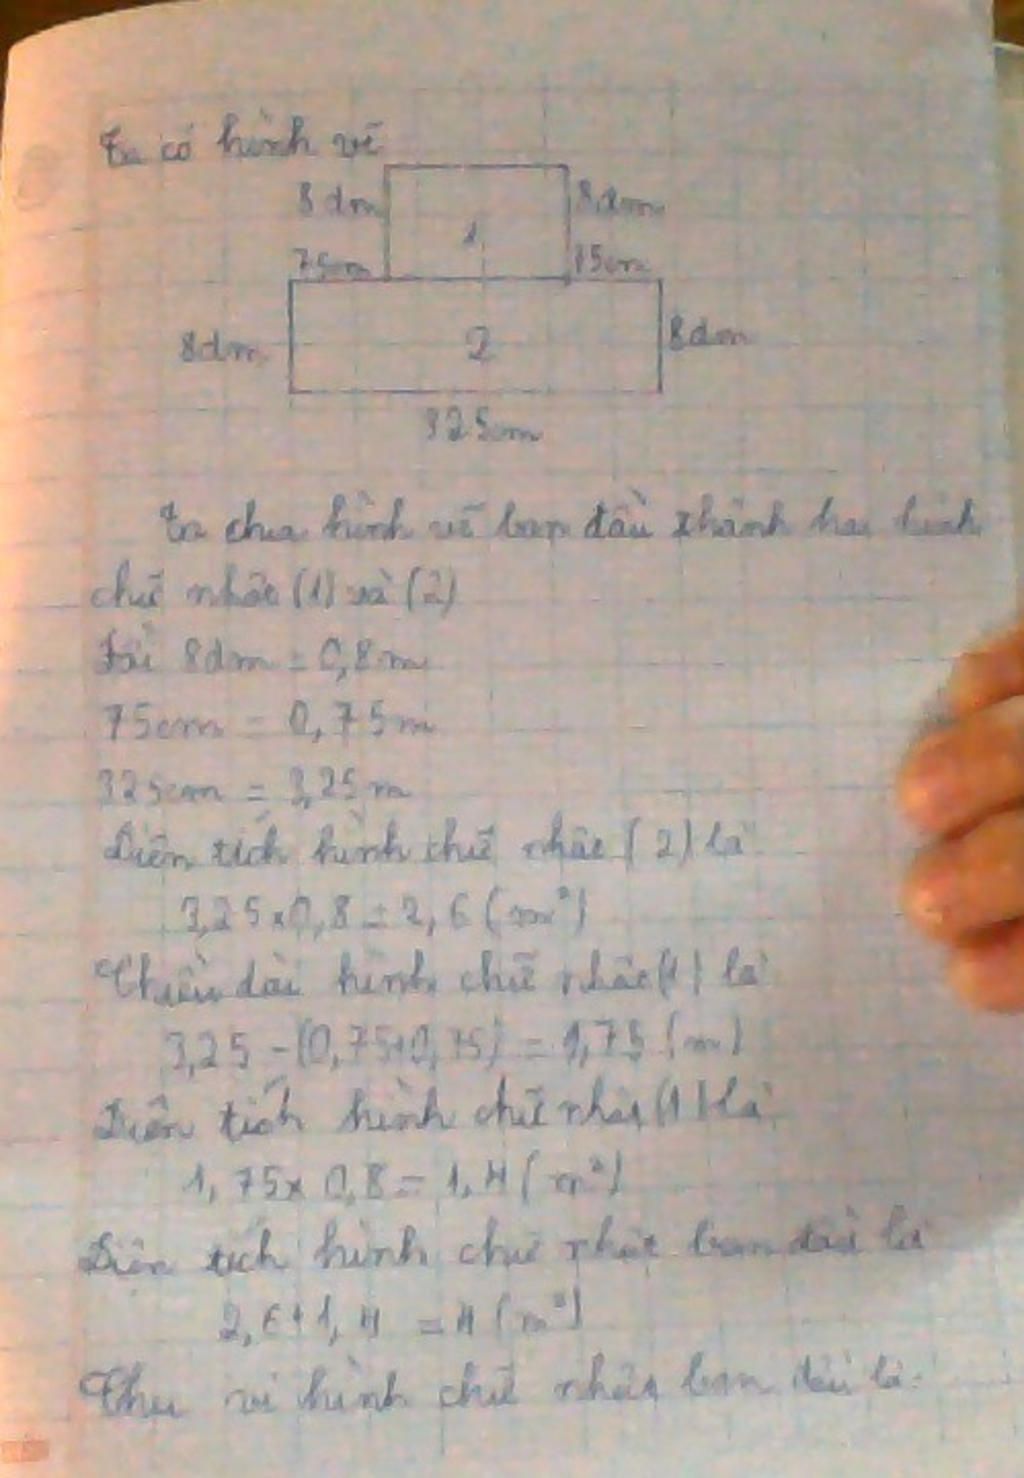 Ta có hình vẽ
8dm 8dm
1
75cm 75cm
8dm 2 8dm
325cm
Ta chia hình vẽ ban đầu thành hai hình
chữ nhật (1) và (2)
Đổi 8dm = 0,8m
75cm = 0,75m
325cm = 3,25m
Diện tích hình chữ nhật (2) là
3,25 x 0,8 = 2,6 (m²)
Chiều dài hình chữ nhật (1) là
3,25 - (0,75+0,75) = 1,75 (m)
Diện tích hình chữ nhật (1) là
1,75 x 0,8 = 1,4 (m²)
Diện tích hình chữ nhật ban đầu là
2,6+1,4 = 4 (m²)
Chu vi hình chữ nhật ban đầu là: